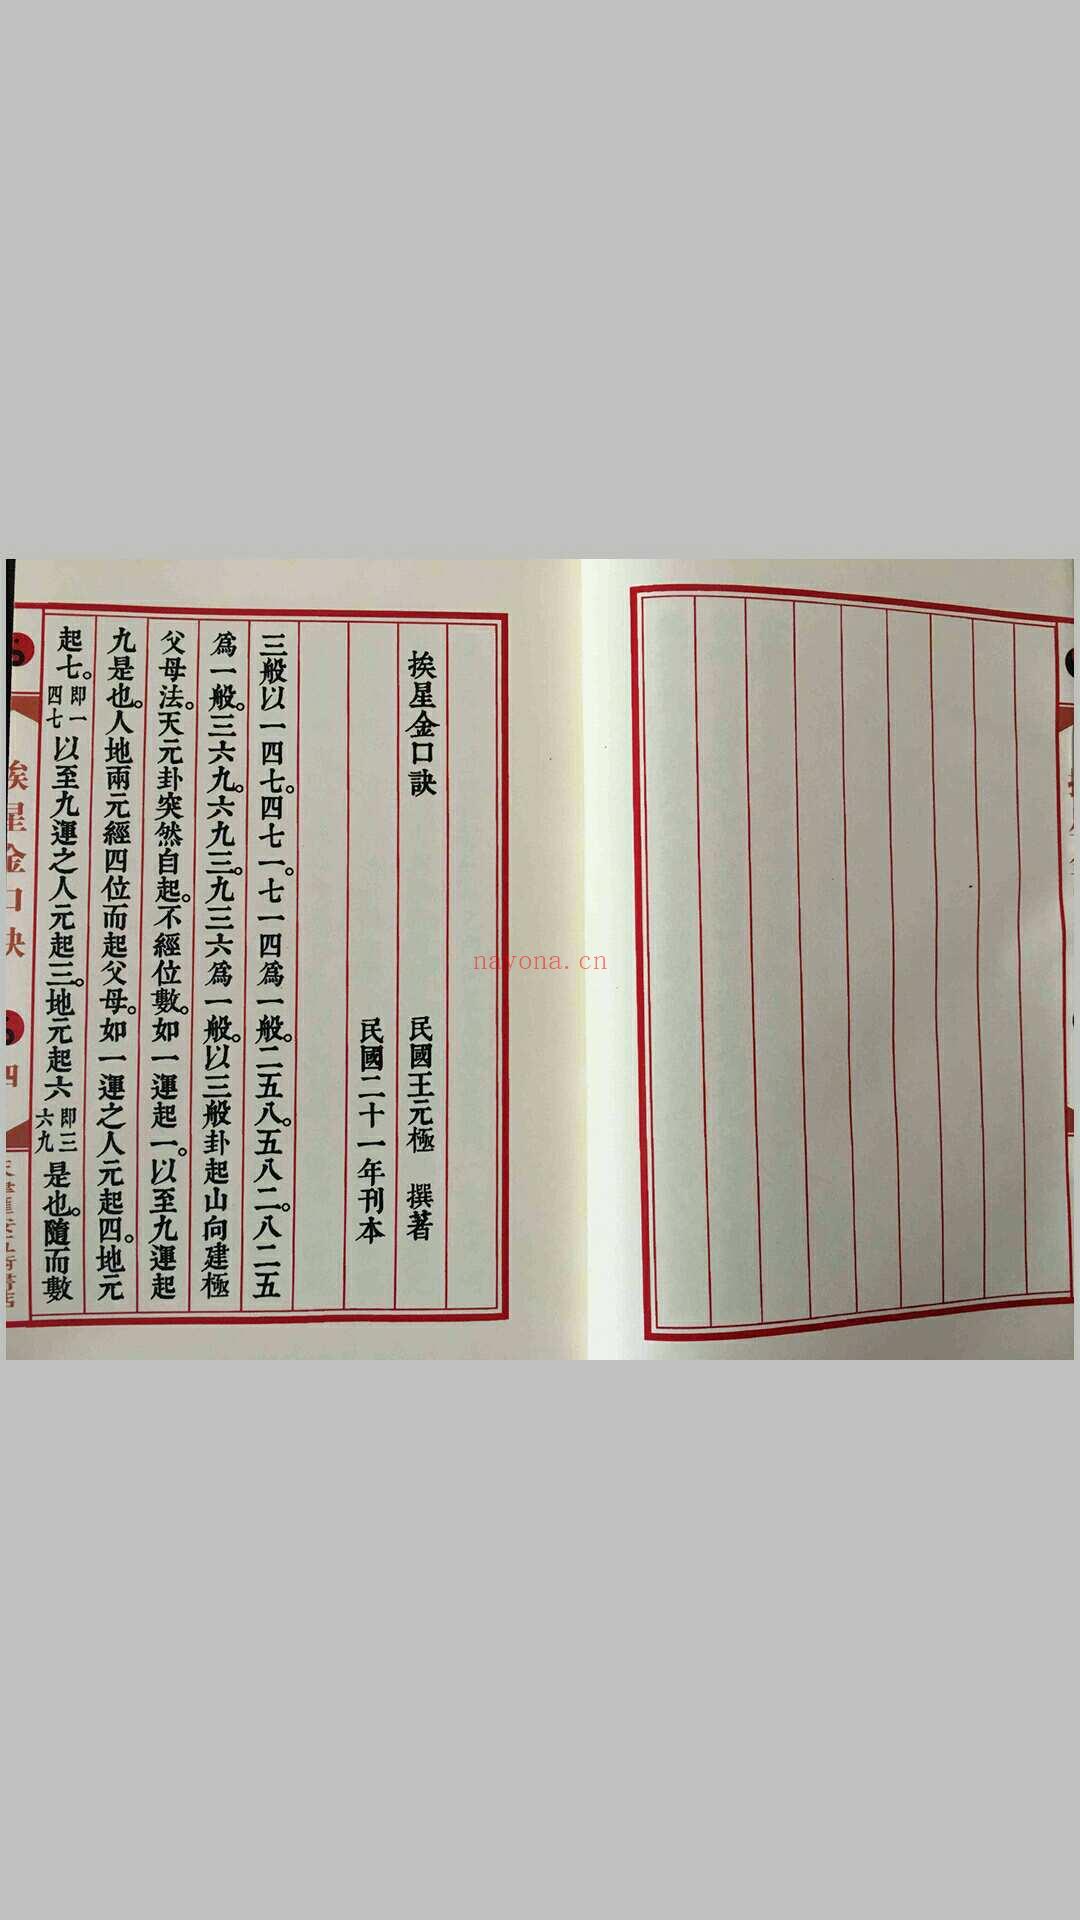 挨星金口訣
民國王元極 撰著
民國二十一年刊本
三般以一四七。四七一。七一四爲一般。二五八。五八二。八二五
爲一般。三六九。六九三。九三六爲一般。以三般卦起山向建極
父母法。天元卦突然自起。不經位數。如一運起一。以至九運起
九是也。人地兩元經四位而起父母。如一運之人元起四。地元
起七。即一四七以至九運之人元起三。地元起六即三六九是也。隨而數
挨星金口訣
四
nayona.cn